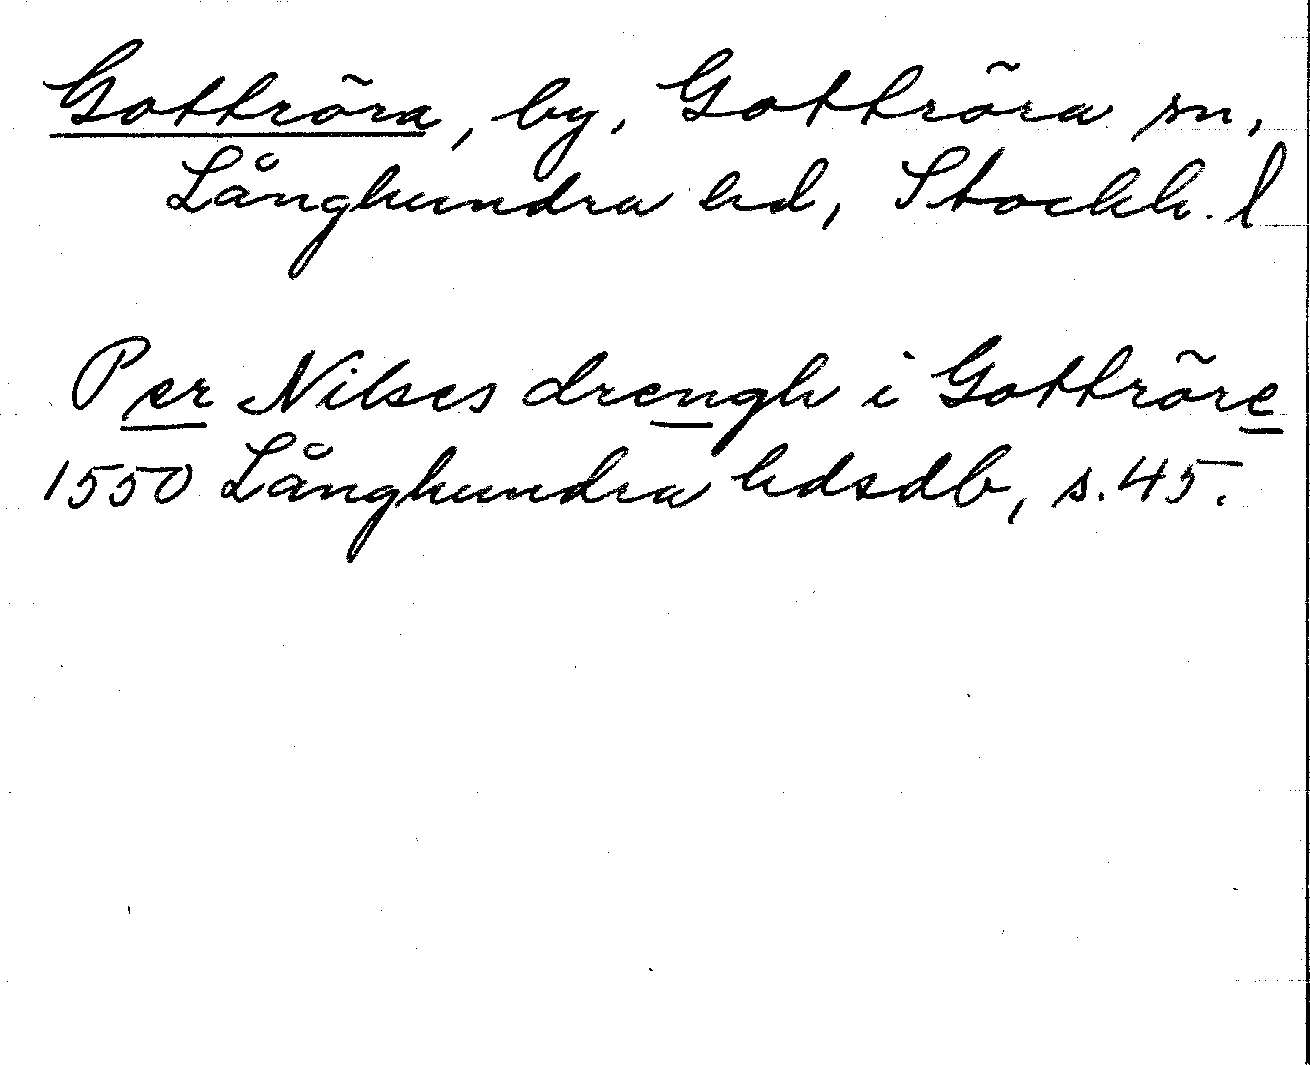 Gottröra, by, Gottröra sn,
Långhundra hd, Stockh. l
Per Nilses drengh i Gottröre
1550 Långhundra hdsdb, s. 45.